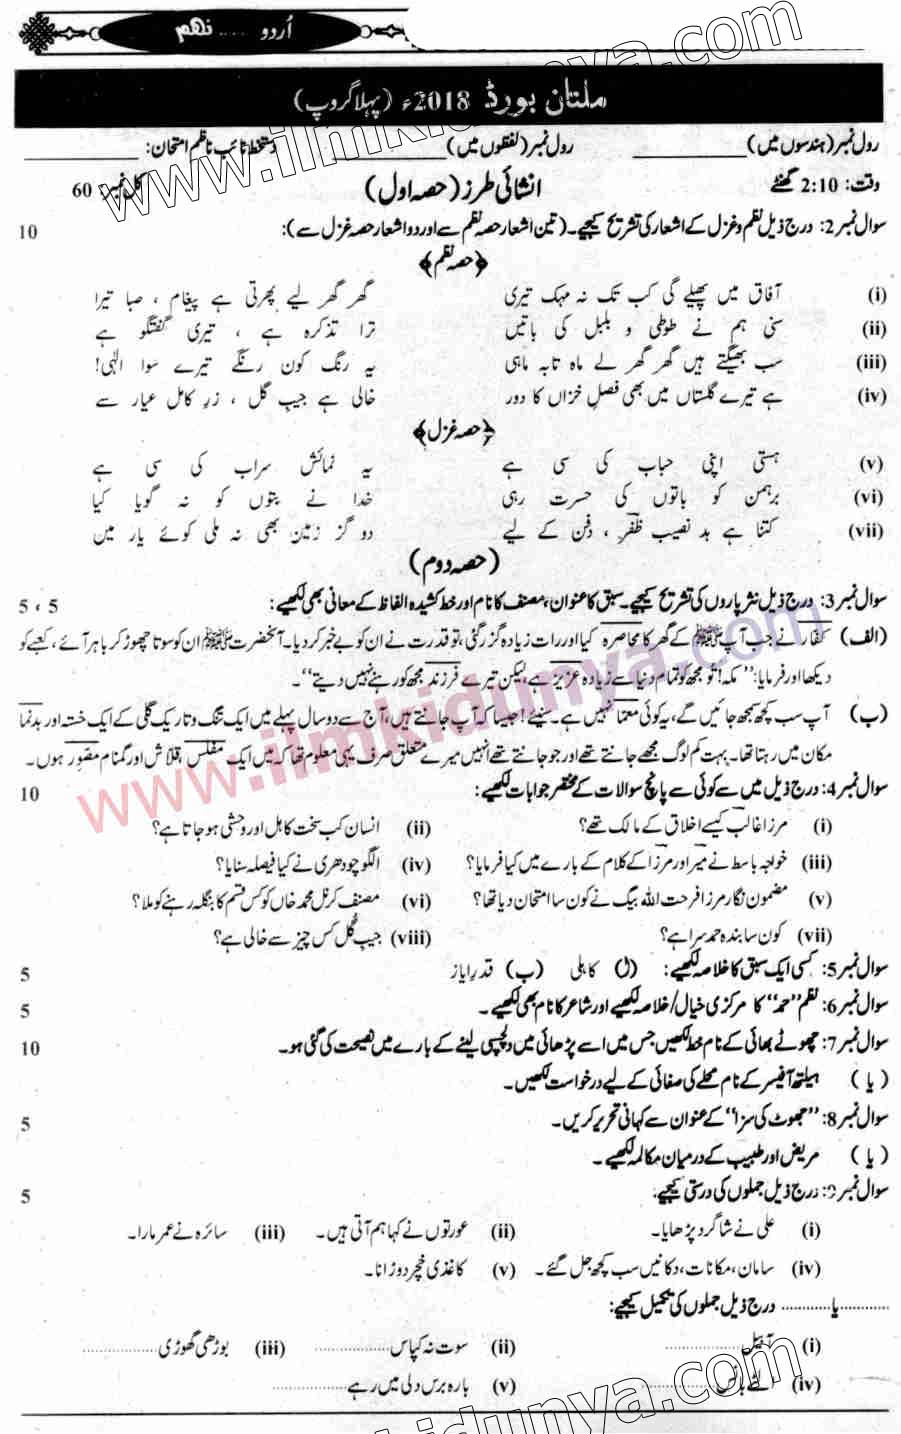 اُردو ...... نہم
ملتان بورڈ 2018ء (پہلا گروپ)
رول نمبر (ہندسوں میں) ____________ رول نمبر (لفظوں میں) ____________ دستخط نائب ناظم امتحان: ____________
وقت: 2:10 گھنٹے انشائی طرز (حصہ اول) کل نمبر: 60
سوال نمبر 2: درج ذیل نظم و غزل کے اشعار کی تشریح کیجیے۔ (تین اشعار حصہ نظم سے اور دو اشعار حصہ غزل سے): 10
﴿حصہ نظم﴾
(i) آفاق میں پھیلے گی کب تک نہ مہک تیری گھر گھر لیے پھرتی ہے پیغام ، صبا تیرا
(ii) سنی ہم نے طوطی و بلبل کی باتیں ترا تذکرہ ہے ، تیری گفتگو ہے
(iii) سب بھیگتے ہیں گھر گھر لے ماہ تابہ ماہی یہ رنگ کون رنگے تیرے سوا الٰہی!
(iv) ہے تیرے گلستاں میں بھی فصلِ خزاں کا دور خالی ہے جیبِ گل ، زرِ کامل عیار سے
﴿حصہ غزل﴾
(v) ہستی اپنی حباب کی سی ہے یہ نمائش سراب کی سی ہے
(vi) برہمن کو باتوں کی حسرت رہی خدا نے بتوں کو نہ گویا کیا
(vii) کتنا ہے بد نصیب ظفؔر ، دفن کے لیے دو گز زمین بھی نہ ملی کوئے یار میں
(حصہ دوم)
سوال نمبر 3: درج ذیل نثر پاروں کی تشریح کیجیے۔ سبق کا عنوان، مصنف کا نام اور خط کشیدہ الفاظ کے معانی بھی لکھیے: 5 ، 5
(الف) کفار نے جب آپ ﷺ کے گھر کا محاصرہ کیا اور رات زیادہ گزر گئی، تو قدرت نے ان کو بے خبر کر دیا۔ آنحضرت ﷺ ان کو سوتا چھوڑ کر باہر آئے، کعبے کو
دیکھا اور فرمایا: ”مکہ! تو مجھ کو تمام دنیا سے زیادہ عزیز ہے، لیکن تیرے فرزند مجھ کو رہنے نہیں دیتے“۔
(ب) آپ سب کچھ سمجھ جائیں گے، یہ کوئی معما نہیں ہے۔ سنیئے! جیسا کہ آپ جانتے ہیں، آج سے دو سال پہلے میں ایک تنگ و تاریک گلی کے ایک خستہ اور بدنما
مکان میں رہتا تھا۔ بہت کم لوگ مجھے جانتے تھے اور جو جانتے تھے انہیں میرے متعلق صرف یہی معلوم تھا کہ میں ایک مفلس، قلاش اور گمنام مصور ہوں۔
سوال نمبر 4: درج ذیل میں سے کوئی سے پانچ سوالات کے مختصر جوابات لکھیے: 10
(i) مرزا غالب کیسے اخلاق کے مالک تھے؟ (ii) انسان کب سخت کاہل اور وحشی ہو جاتا ہے؟
(iii) خواجہ باسط نے میر اور مرزا کے کلام کے بارے میں کیا فرمایا؟ (iv) الگو چودھری نے کیا فیصلہ سنایا؟
(v) مضمون نگار مرزا فرحت اللہ بیگ نے کون سا امتحان دیا تھا؟ (vi) مصنف کرنل محمد خاں کو کس قسم کا بنگلہ رہنے کو ملا؟
(vii) کون سا بندہ حمد سرا ہے؟ (viii) جیبِ گُل کس چیز سے خالی ہے؟
سوال نمبر 5: کسی ایک سبق کا خلاصہ لکھیے: (ا) کاہلی (ب) قدرِ ایاز 5
سوال نمبر 6: نظم ”حمد“ کا مرکزی خیال/خلاصہ لکھیے اور شاعر کا نام بھی لکھیے۔ 5
سوال نمبر 7: چھوٹے بھائی کے نام خط لکھیں جس میں اسے پڑھائی میں دلچسپی لینے کے بارے میں نصیحت کی گئی ہو۔ 10
(یا) ہیلتھ آفیسر کے نام محلے کی صفائی کے لیے درخواست لکھیں۔
سوال نمبر 8: ”جھوٹ کی سزا“ کے عنوان سے کہانی تحریر کریں۔ 5
(یا) مریض اور طبیب کے درمیان مکالمہ لکھیے۔
سوال نمبر 9: درج ذیل جملوں کی درستی کیجیے: 5
(i) علی نے شاگرد پڑھایا۔ (ii) عورتوں نے کہا ہم آتی ہیں۔ (iii) سائرہ نے عمر مارا۔
(iv) سامان، مکانات، دکانیں سب کچھ جل گئے۔ (v) کاغذی خچر دوڑانا۔
............یا............ درج ذیل جملوں کی تکمیل کیجیے:
(i) آ بیل ............ (ii) سوت نہ کپاس ............ (iii) بوڑھی گھوڑی ............
(iv) الٹے بانس ............ (v) بارہ برس دلی میں رہے ............
www.ilmkidunya.com
www.ilmkidunya.com